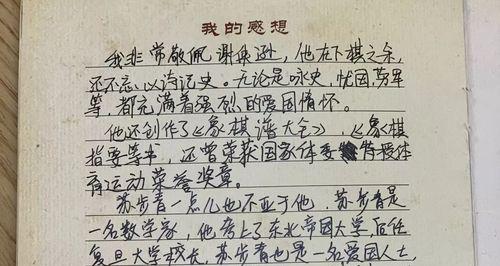 我的感想
我非常敬佩谢侠逊，他在下棋之余，
还不忘以诗记史。无论是咏史，忧国，劳军
等，都充满着强烈的爱国情怀。
他还创作了《象棋谱大全》，《象棋
指要等书，还曾荣获国家体委授体
育运动荣誉奖章。
苏步青一点儿也不亚于他，苏步青是
一名数学家，他考上了东北帝国大学，后任
复旦大学校长，苏步青也是一名爱国人士，